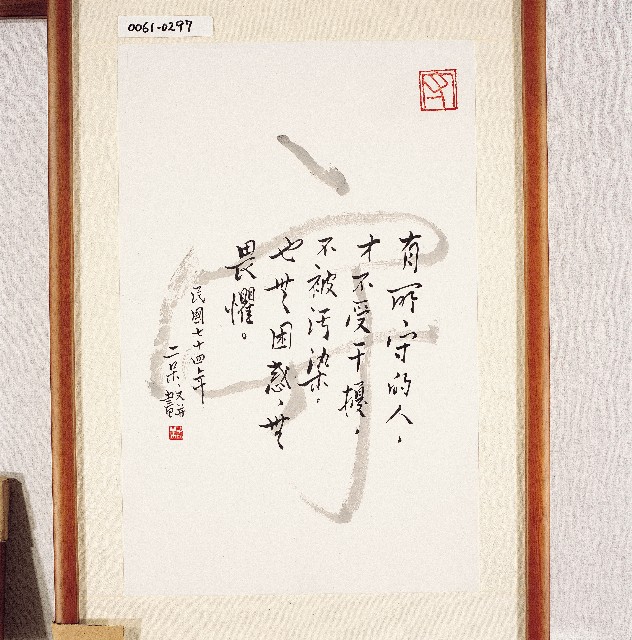 0061-0297
守
有所守的人，
才不受干擾，
不被污染，
也無困惑、無
畏懼。
民國七十四年
二呆、文并書